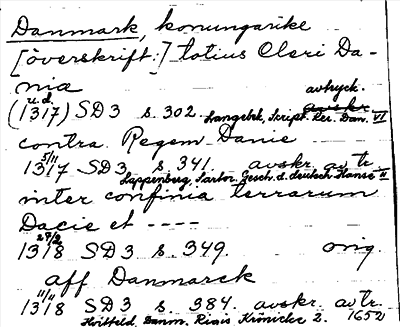 Danmark, konungarike
[överskrift:] totius Cleri Da-
niæ avtryck.
u.d.
(1317) SD 3 s. 302. Langebek, Script. Rer. Dan. VI
contra Regem Danie
5/11
1317 SD 3 s. 341. avskr. av tr.
Lappenberg, Sartor. Gesch. d. deutsch. Hanse II
inter confinia terrarum
Dacie et ----
27/2
1318 SD 3 s. 349. orig.
aff Danmarck
11/11
1318 SD 3 s. 384. avskr. av tr.
Hvitfeld. Danm. Rigis Krönicke 2. 1652